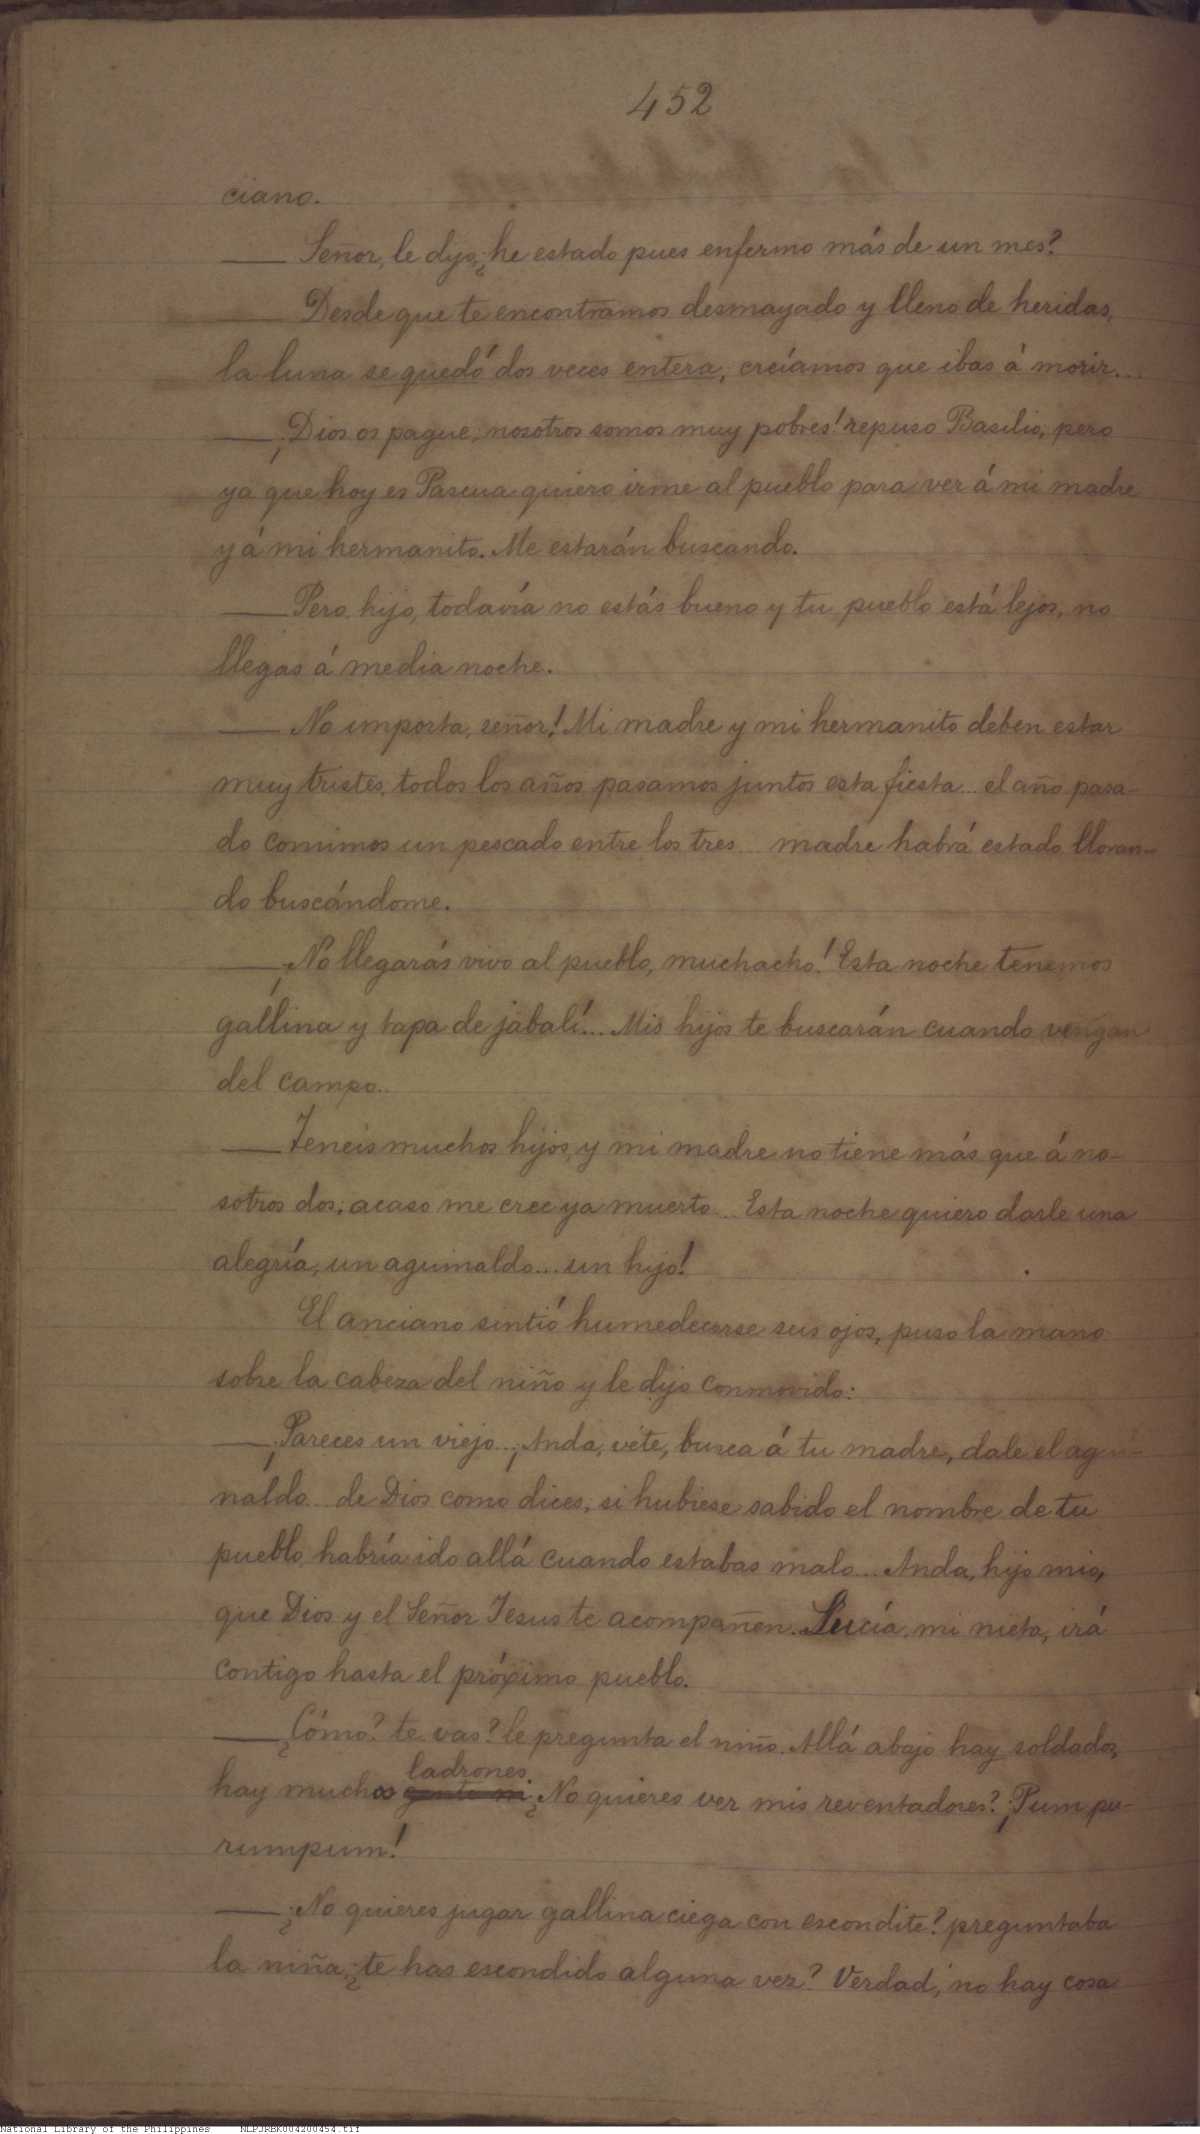 452
ciano.
— Señor, le dijo, ¿he estado pues enfermo más de un mes?
— Desde que te encontramos desmayado y lleno de heridas,
la luna se quedó dos veces entera, creíamos que ibas á morir...
— ¡Dios os pague, nosotros somos muy pobres! repuso Basilio, pero
ya que hoy es Pascua quiero irme al pueblo para ver á mi madre
y á mi hermanito. Me estarán buscando.
— Pero, hijo, todavía no estás bueno y tu pueblo está lejos, no
llegas á media noche.
— No importa, señor! Mi madre y mi hermanito deben estar
muy tristes, todos los años pasamos juntos esta fiesta... el año pasa-
do comimos un pescado entre los tres... madre habrá estado lloran-
do buscándome.
— ¡No llegarás vivo al pueblo, muchacho! Esta noche tenemos
gallina y tapa de jabalí... Mis hijos te buscarán cuando vengan
del campo..
— Teneis muchos hijos, y mi madre no tiene más que á no-
sotros dos; acaso me cree ya muerto... Esta noche quiero darle una
alegría, un aguinaldo... un hijo!
El anciano sintió humedecerse sus ojos, puso la mano
sobre la cabeza del niño y le dijo conmovido:
— ¡Pareces un viejo... ¡Anda, vete, busca á tu madre, dale el agui-
naldo... de Dios como dices; si hubiese sabido el nombre de tu
pueblo, habría ido allá cuando estabas malo... Anda, hijo mio,
que Dios y el Señor Jesus te acompañen. Lucía, mi nieta, irá
contigo hasta el próximo pueblo.
— ¿Cómo? te vas? le pregunta el niño. Allá abajo hay soldados,
ladrones.
hay muchos gente m ¿No quieres ver mis reventadores? ¡Pum pu-
rumpum!
— ¿No quieres jugar gallina ciega con escondite? preguntaba
la niña, ¿te has escondido alguna vez? Verdad, no hay cosa
National Library of the Philippines NLPJRBK004200454.tif